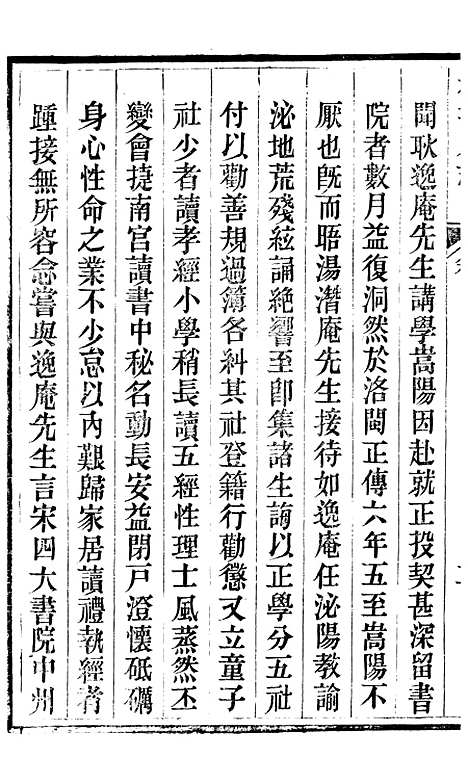 聞耿逸庵先生講學嵩陽因赴就正投契甚深留書
院者數月益復洞然於洛閩正傳六年五至嵩陽不
厭也旣而晤湯潛庵先生接待如逸庵任泌陽教諭
泌地荒殘絃誦絶響至卽集諸生誨以正學分五社
付以勸善規過簿各糾其社登籍行勸懲又立童子
社少者讀孝經小學稍長讀五經性理士風蒸然丕
變會捷南宮讀書中秘名動長安益閉戸澄懷砥礪
身心性命之業不少怠以內艱歸家居讀禮執經者
踵接無所容念嘗與逸庵先生言宋四大書院中州